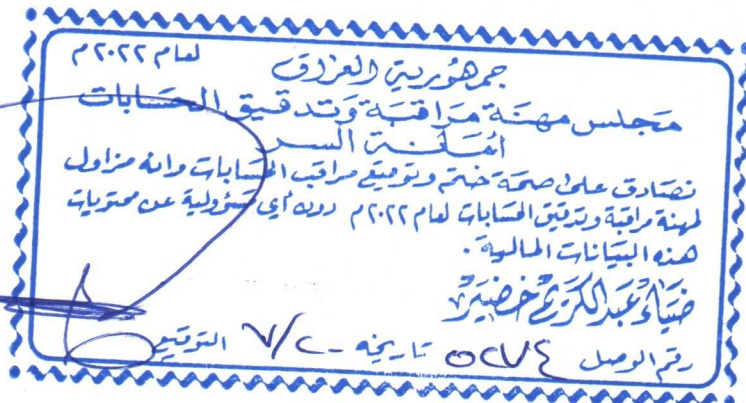 لعام ٢٠٢٢م
جمهورية العراق
مجلس مهنة مراقبة وتدقيق الحسابات
أمانة السر
نصادق على صحة ختم وتوقيع مراقب الحسابات وانه مزاول
لمهنة مراقبة وتدقيق الحسابات لعام ٢٠٢٢م دون أي مسؤولية عن محتويات
هذه البيانات المالية.
ضياء عبد الكريم خضير
رقم الوصل ٥٢٧٤ تاريخه ٧/٢٠ التوقيع